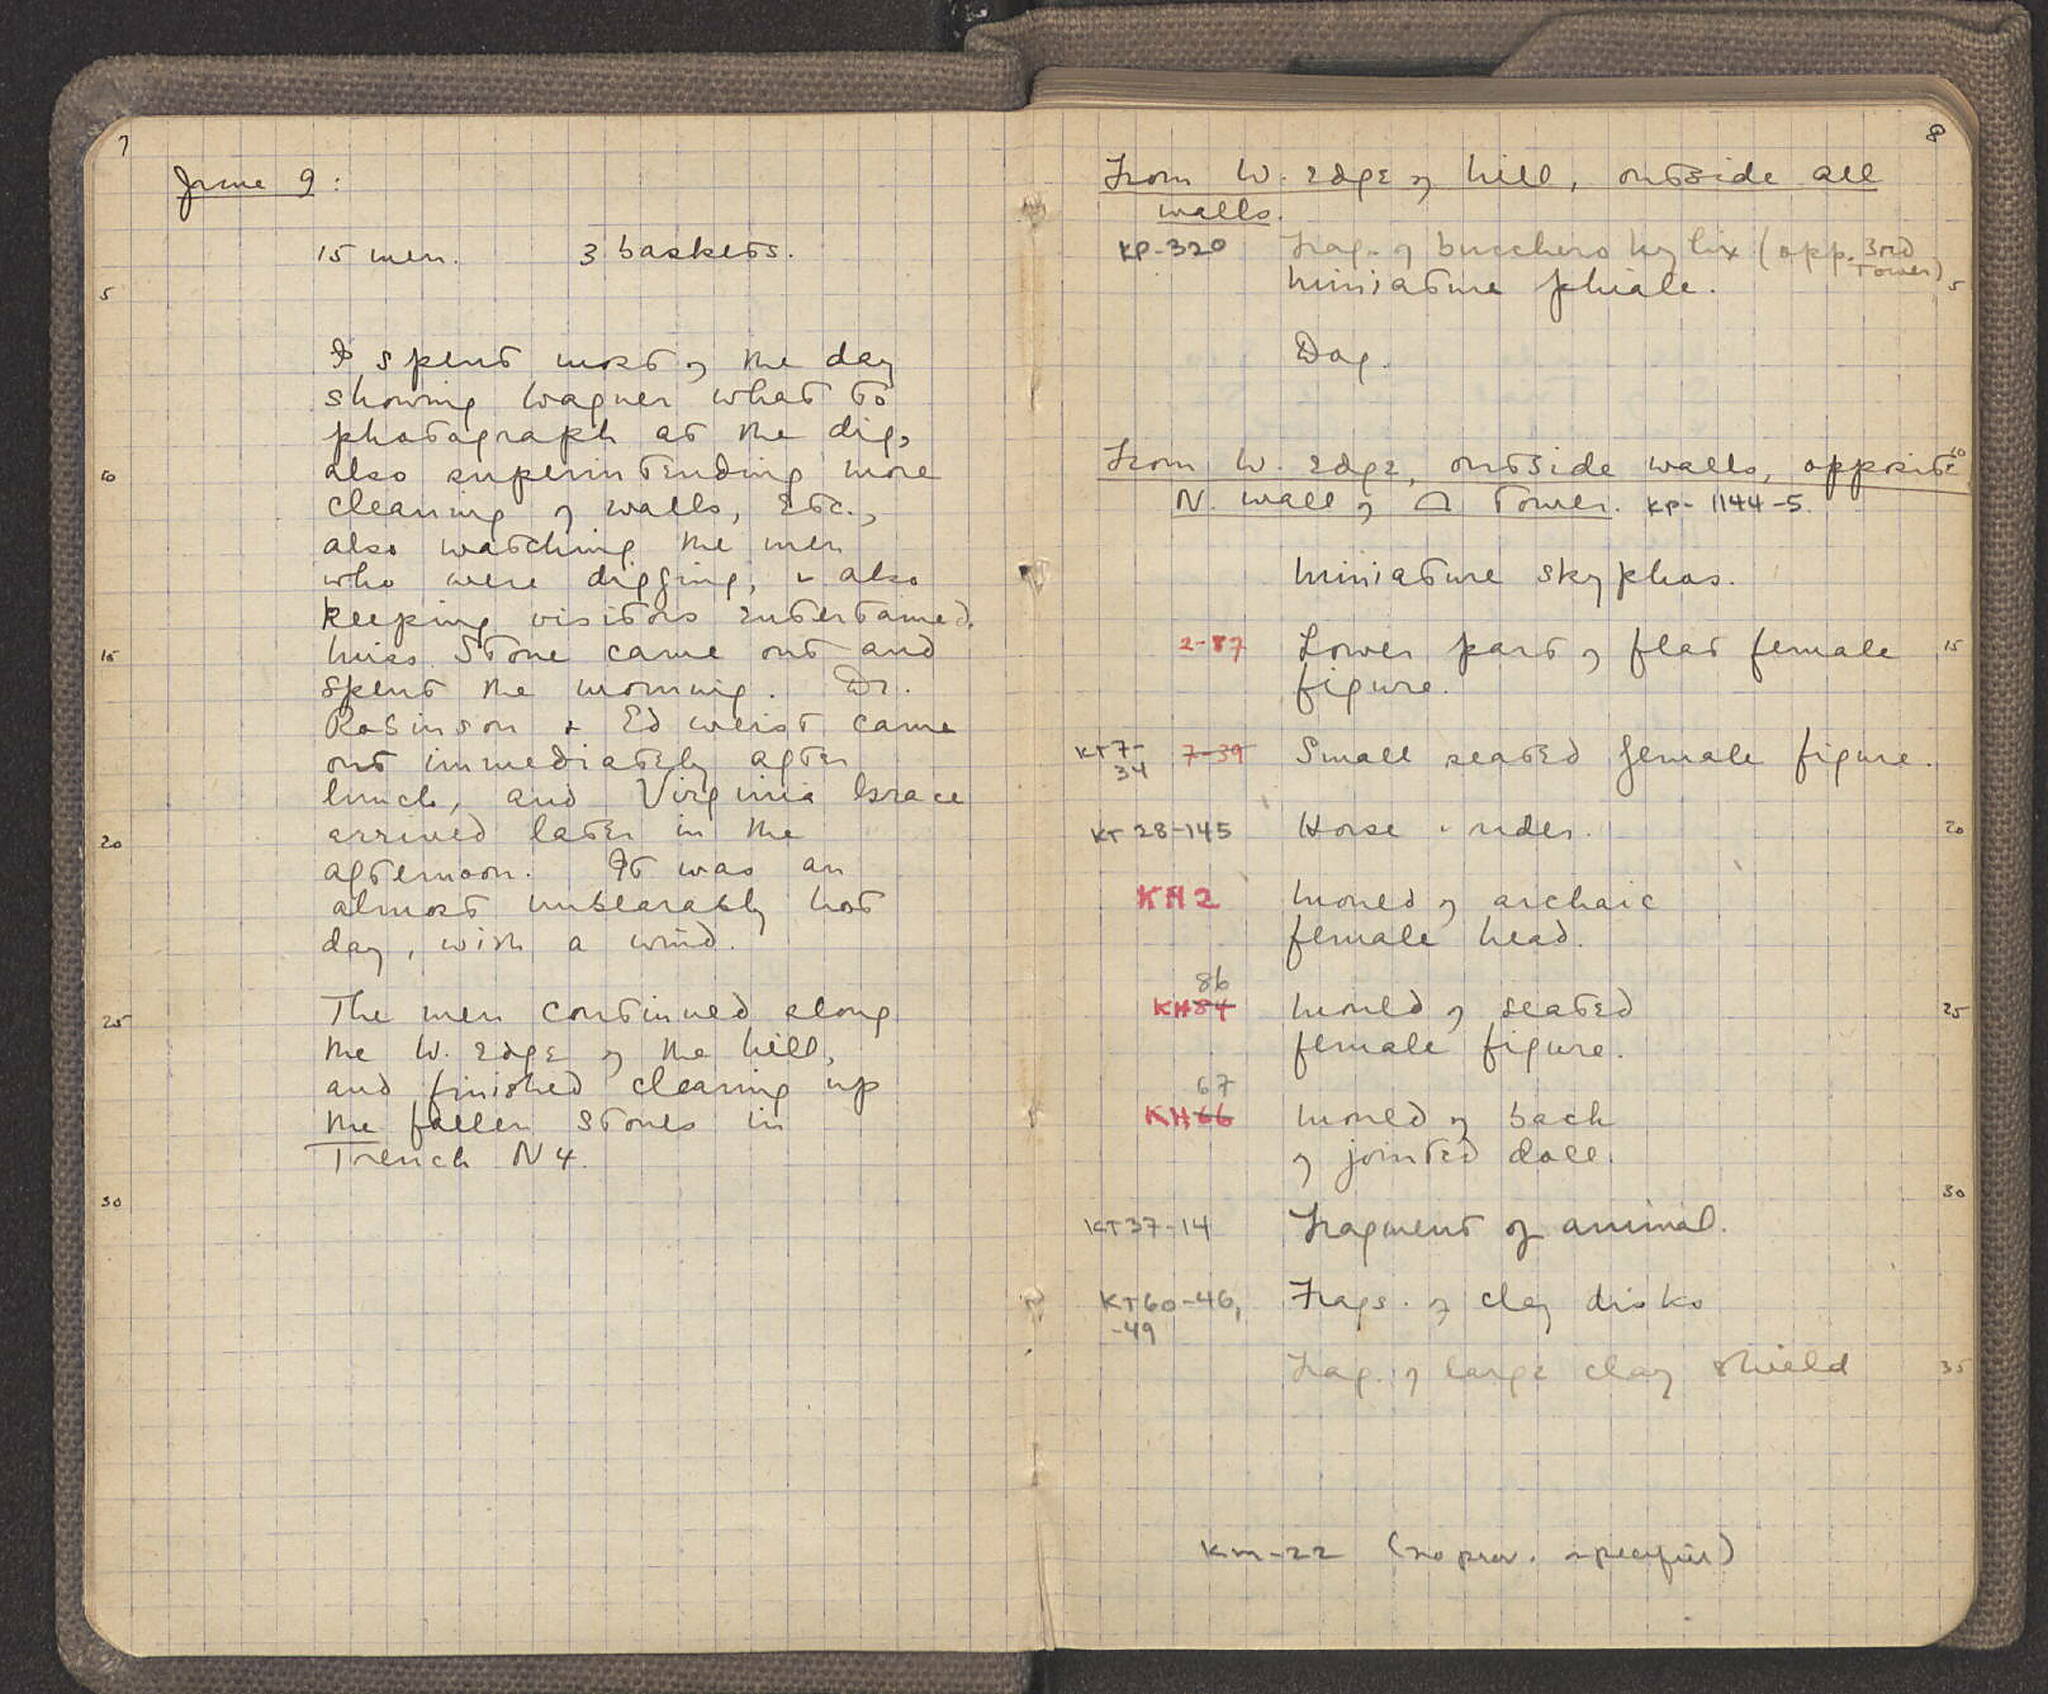 7
June 9:
15 men. 3 baskets.
5
I spent most of the day
showing Wagner what to
photograph at the dig,
10 also superintending more
cleaning of walls, etc.,
also watching the men
who were digging, & also
keeping visitors entertained.
15 Miss Stone came out and
spent the morning. Dr.
Robinson & Ed Weist came
out immediately after
lunch, and Virginia Grace
20 arrived later in the
afternoon. It was an
almost unbearably hot
day, with a wind.
25 The men continued along
the W. edge of the hill,
and finished clearing up
the fallen stones in
Trench N4.
30
8
From W. edge of hill, outside all
walls.
KP-320 Frag. of bucchero kylix (opp. 3rd
Tower)
Miniature phiale. 5
Dog.
From W. edge, outside walls, opposite 10
N. wall of Tower. KP-1144-5.
Miniature skyphos.
2-87 Lower part of flat female 15
figure.
KT7-34 7-39 Small seated female figure.
KT 28-145 Horse & rider. 20
KH2 Mould of archaic
female head.
86
KH84 Mould of seated 25
female figure.
67
KH66 Mould of back
of jointed doll.
30
KT37-14 Fragment of animal.
KT60-46, Frags. of clay disks
-49
Frag. of large clay shield 35
KM-22 (no prov. specified)